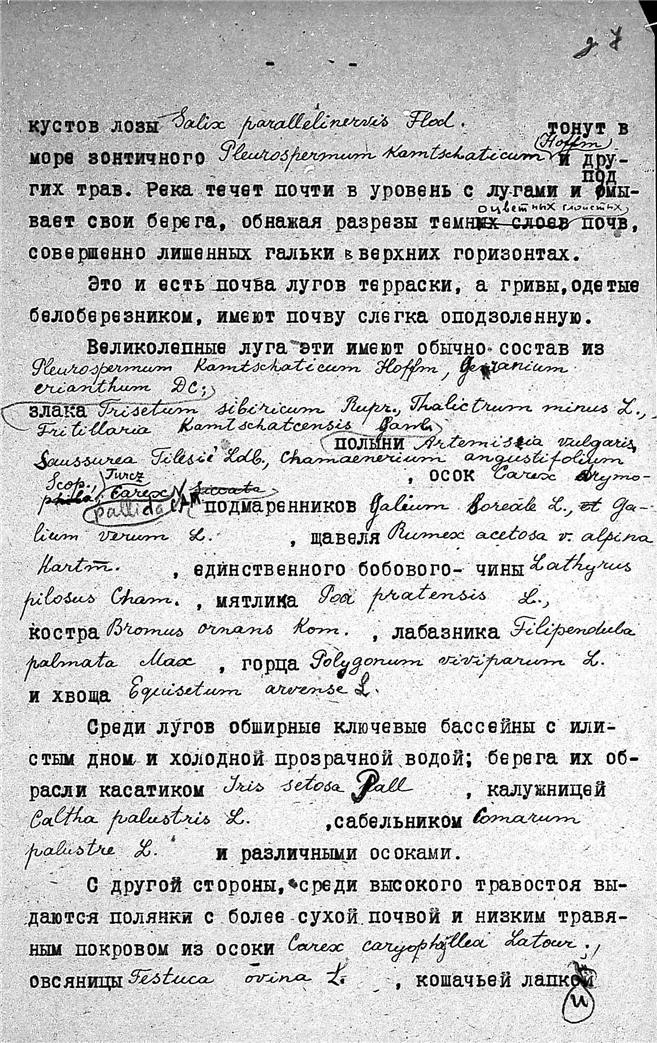 кустов лозы Salix parallelinervis Flod. тонут в
Hoffm
море зонтичного Pleurospermum Kamtschaticum и дру-
под
гих трав. Река течет почти в уровень с лугами и мы-
оцветных глинистых
вает свои берега, обнажая разрезы темных слоев почв,
совершенно лишенных гальки в верхних горизонтах.
Это и есть почва лугов терраски, а гривы, одетые
белоберезником, имеют почву слегка оподзоленную.
Великолепные луга эти имеют обычно состав из
Pleurospermum Kamtschaticum Hoffm, Geranium
erianthum DC;
злака Trisetum sibiricum Rupr., Thalictrum minus L.,
Fritillaria Kamtschatcensis Gawl.
полыни Artemisia vulgaris,
Saussurea Tilesii Ldb., Chamaenerium angustifolium
Scop., , осок Carex drymo-
phila, Turcz Carex siccata
pallida и подмаренников Galium boreale L., et Ga-
lium verum L. , щавеля Rumex acetosa v. alpina
Hartm. , единственного бобового- чины Lathyrus
pilosus Cham. , мятлика Poa pratensis L.,
костра Bromus ornans Kom. , лабазника Filipendula
palmata Max , горца Polygonum viviparum L.
и хвоща Equisetum arvense L.
Среди лугов обширные ключевые бассейны с или-
стым дном и холодной прозрачной водой; берега их об-
расли касатиком Iris setosa Pall , калужницей
Caltha palustris L. ,сабельником Comarum
palustre L. и различными осоками.
С другой стороны, среди высокого травостоя вы-
даются полянки с более сухой почвой и низким травя-
ным покровом из осоки Carex caryophyllea Latour.,
овсяницы Festuca ovina L. , кошачьей лапкой
и